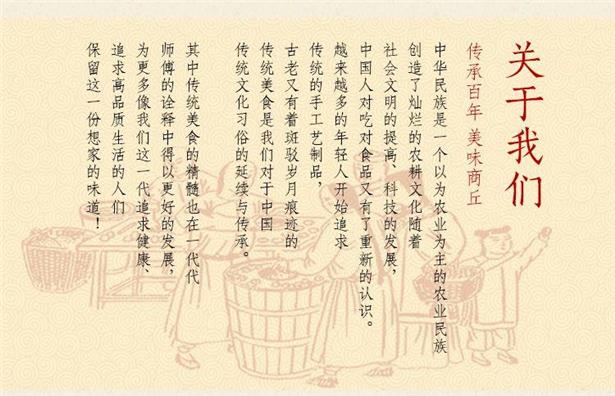 关于我们
传承百年 美味商丘
中华民族是一个以为农业为主的农业民族
创造了灿烂的农耕文化随着
社会文明的提高、科技的发展，
中国人对吃对食品又有了重新的认识。
越来越多的年轻人开始追求
传统的手工艺制品，
古老又有着斑驳岁月痕迹的
传统美食是我们对于中国
传统文化习俗的延续与传承。
其中传统美食的精髓也在一代代
师傅的诠释中得以更好的发展，
为更多像我们这一代追求健康、
追求高品质生活的人们
保留这一份想家的味道！